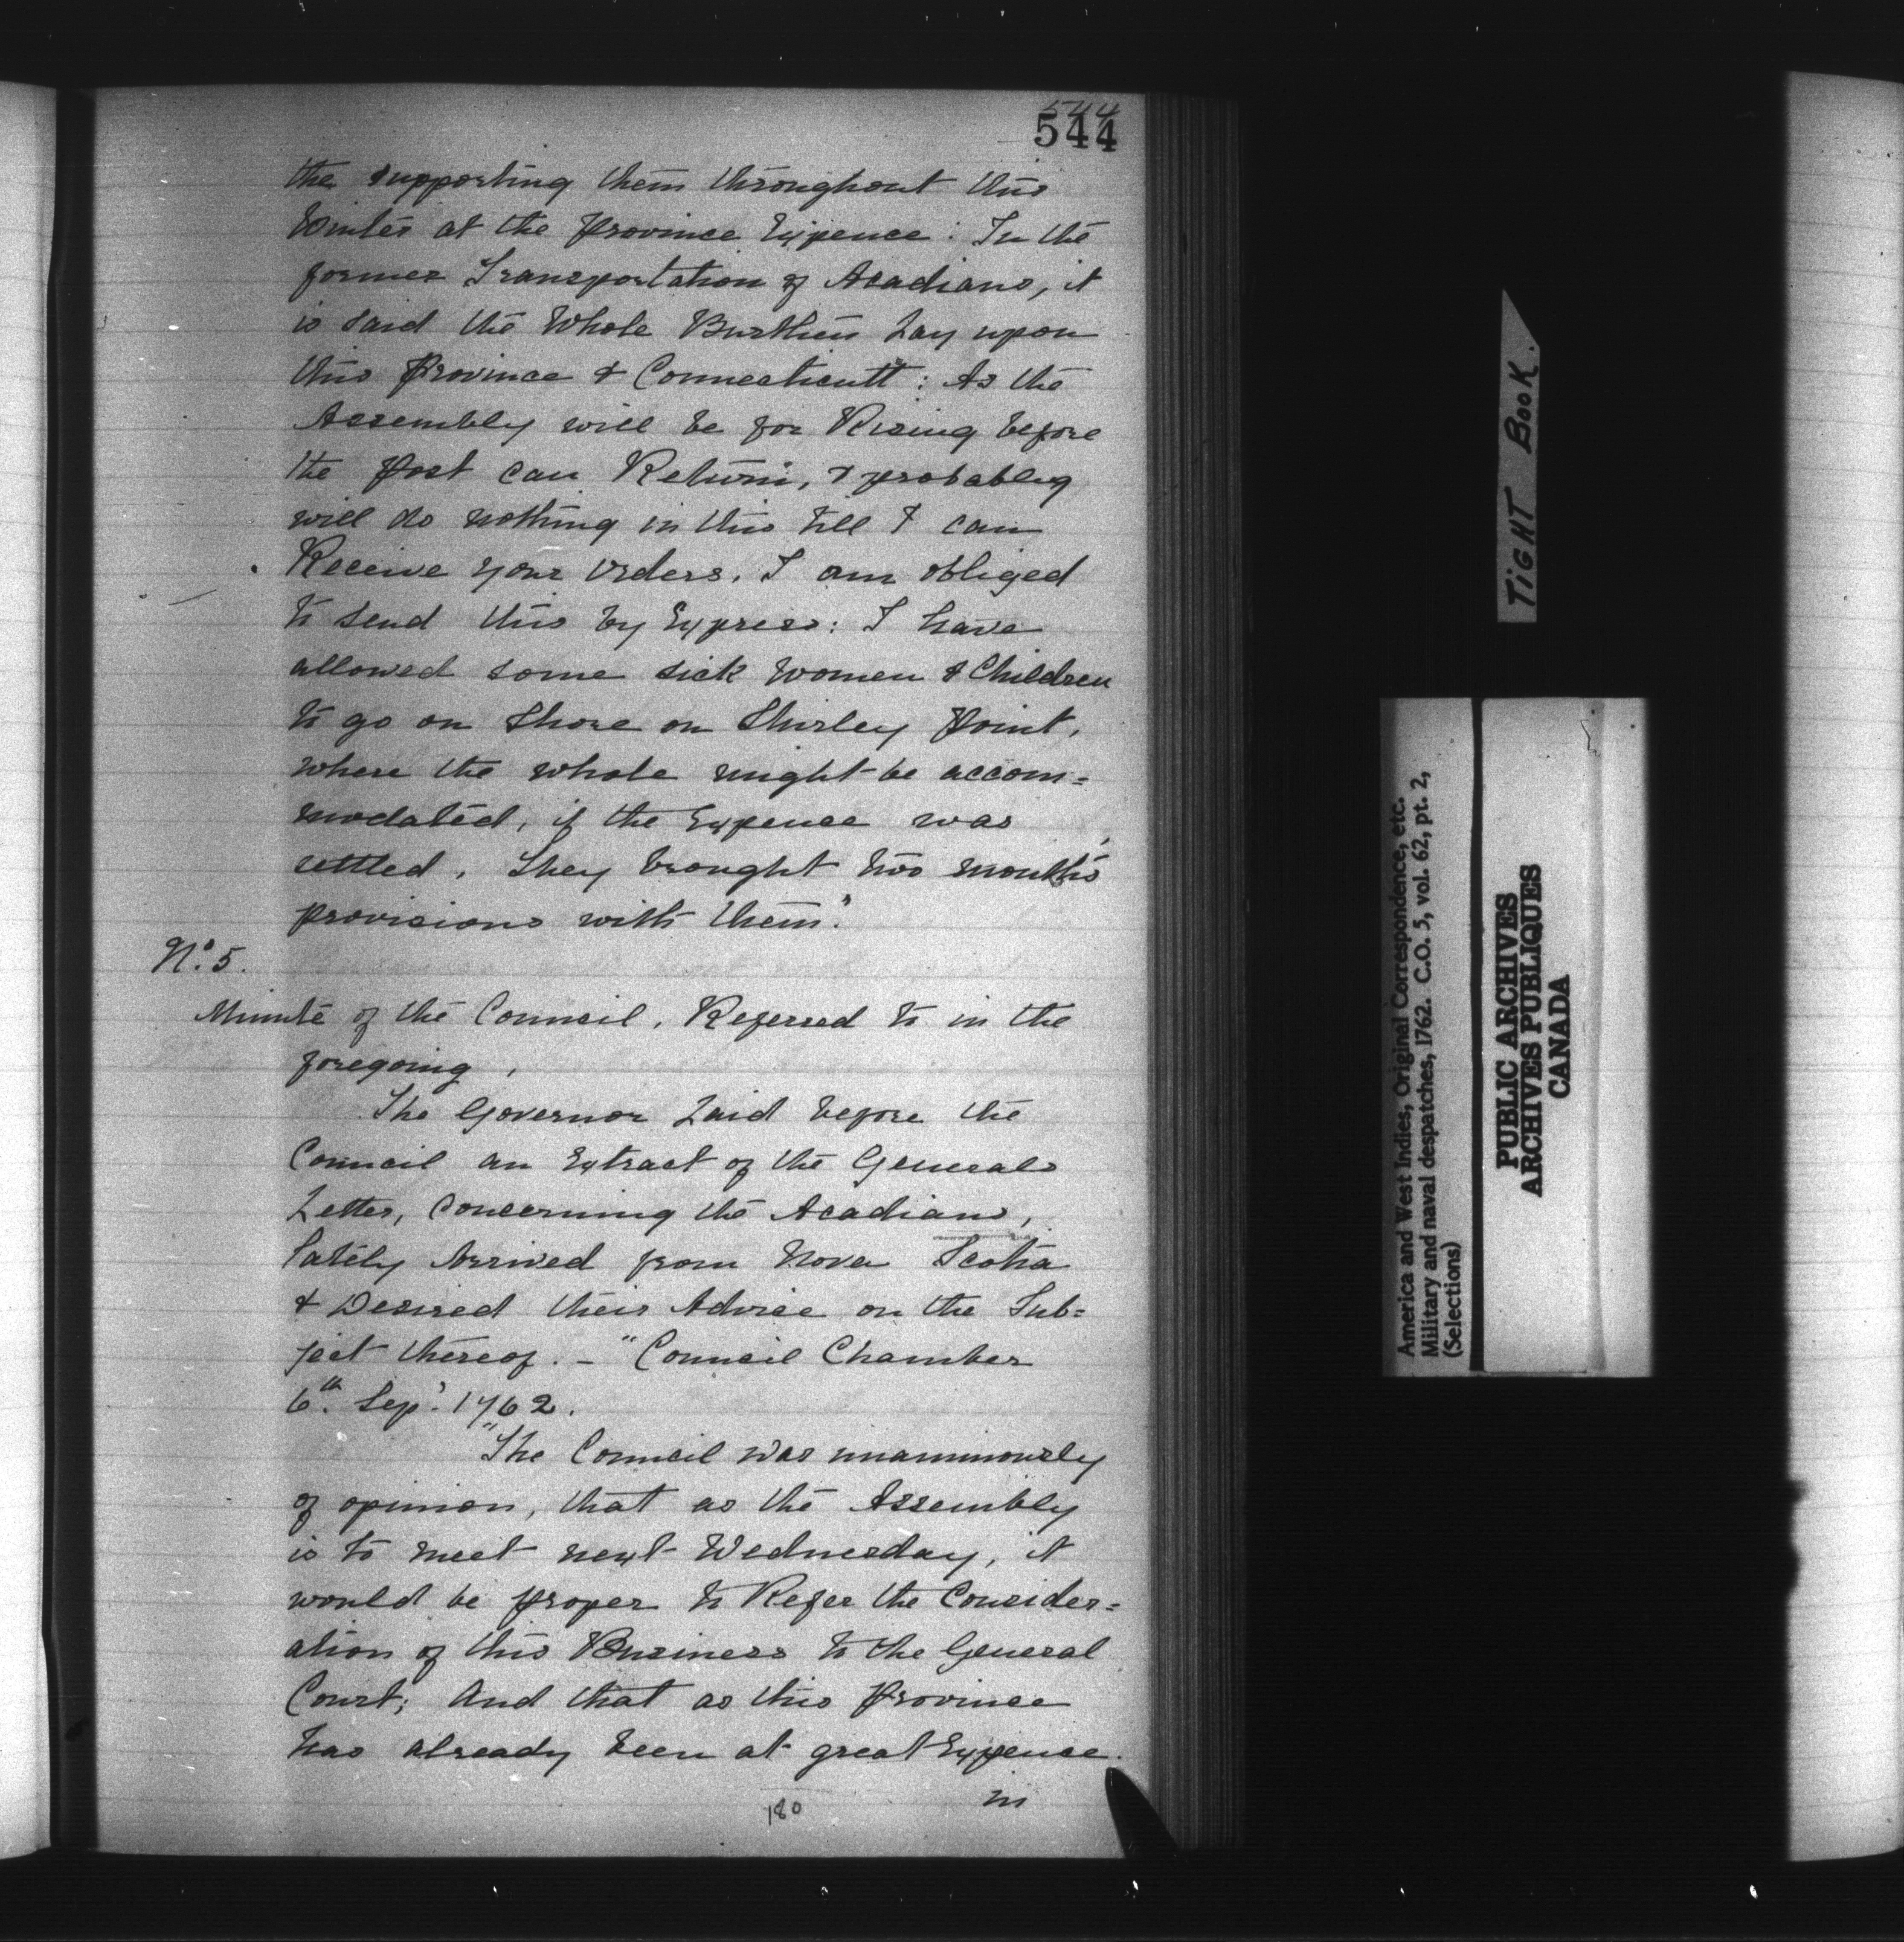 544
544
the supporting them throughout this
Winter at the Province Expence: In the
former Transportation of Acadians, it
is said the Whole Burthen Lay upon
this Province & Connecticutt: As the
Assembly will be for Rising before
the Post can Return, & probably
will do nothing in this till I can
Receive your Orders, I am obliged
to send this by Express: I have
allowed some sick Women & Children
to go on Shore on Shirley Point,
where the whole might be accom=
modated, if the Expence was
settled. They brought two months
provisions with them."
No. 5.
Minute of the Council, Referred to in the
foregoing,
The Governor Laid before the
Council an Extract of the Generals
Letter, Concerning the Acadians,
lately Arrived from Nova Scotia
& Desired their Advice on the Sub=
ject thereof. — "Council Chamber
6th. Sepr. 1762.
"The Council was unanimously
of opinion, that as the Assembly
is to meet next Wednesday, it
would be proper to Refer the Consider=
ation of this Business to the General
Court; And that as this Province
has already been at great Expence
in
180
TIGHT BOOK.
America and West Indies, Original Correspondence, etc.
Military and naval despatches, 1762. C.O. 5, vol. 62, pt. 2,
(Selections)
PUBLIC ARCHIVES
ARCHIVES PUBLIQUES
CANADA